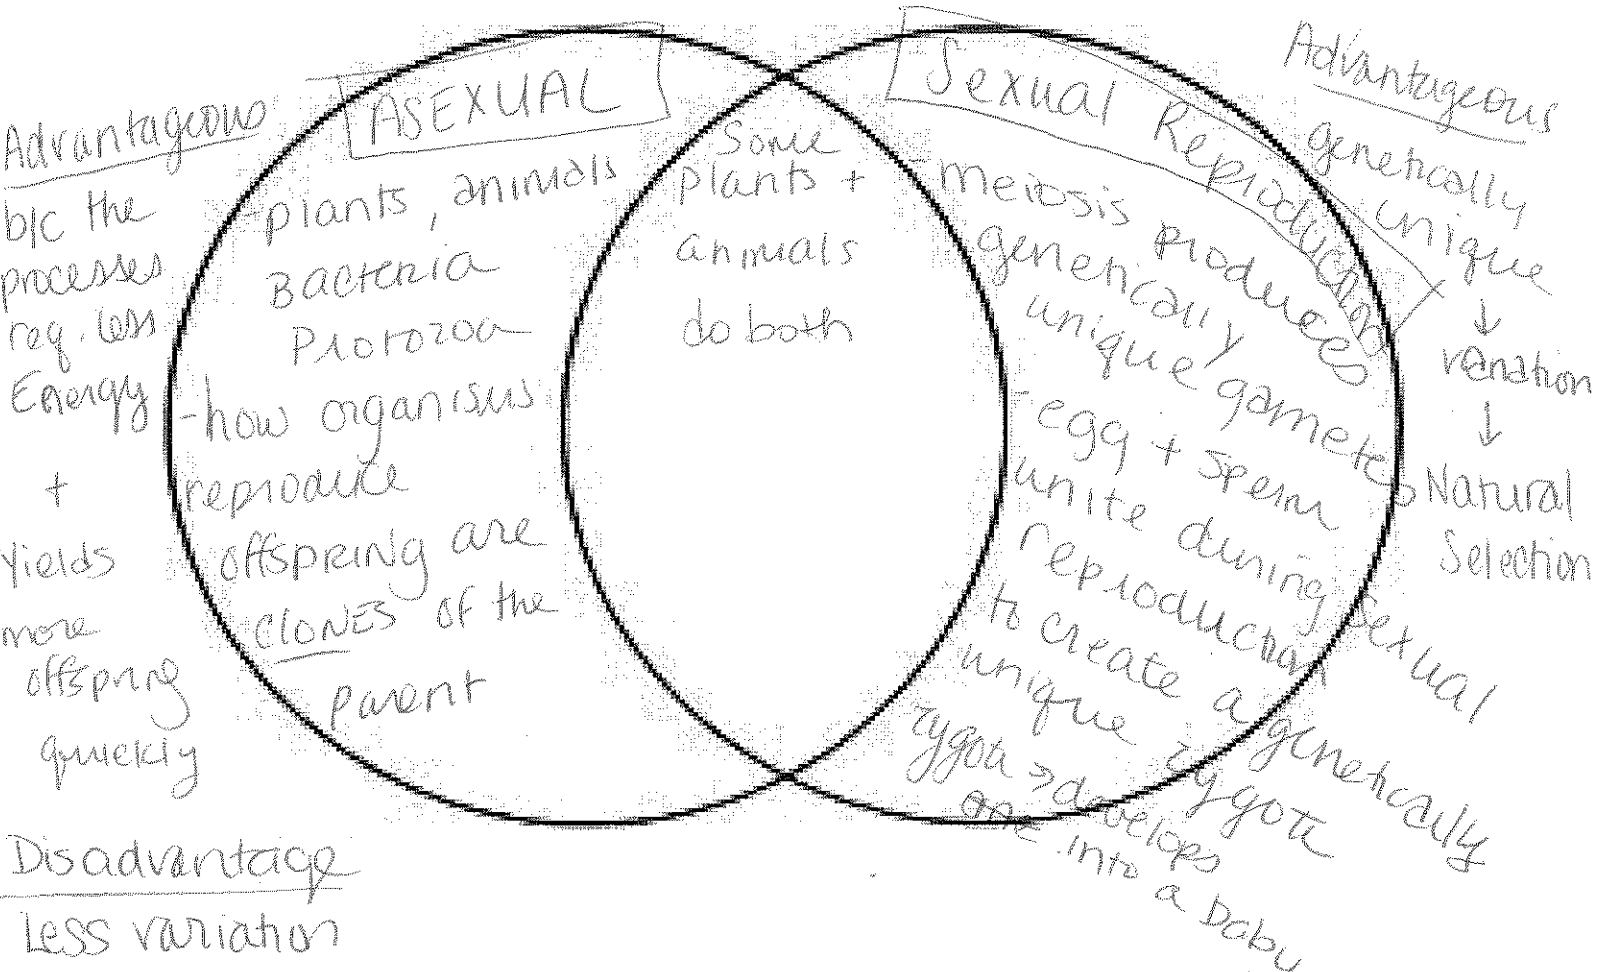 Advantageous
b/c the
processes
req. less
Energy
+
Yields
more
offspring
quickly
Disadvantage
Less variation
ASEXUAL
- plants, animals
Bacteria
Protozoa
- how organisms
reproduce
offspring are
CLONES of the
parent
Some
plants +
animals
do both
Sexual Reproduction
- meiosis produces
genetically
unique gametes
- egg + sperm
unite during sexual
reproduction
to create a genetically
unique zygote
zygote → develops
into a baby
Advantageous
genetically
unique
↓
variation
↓
Natural
Selection